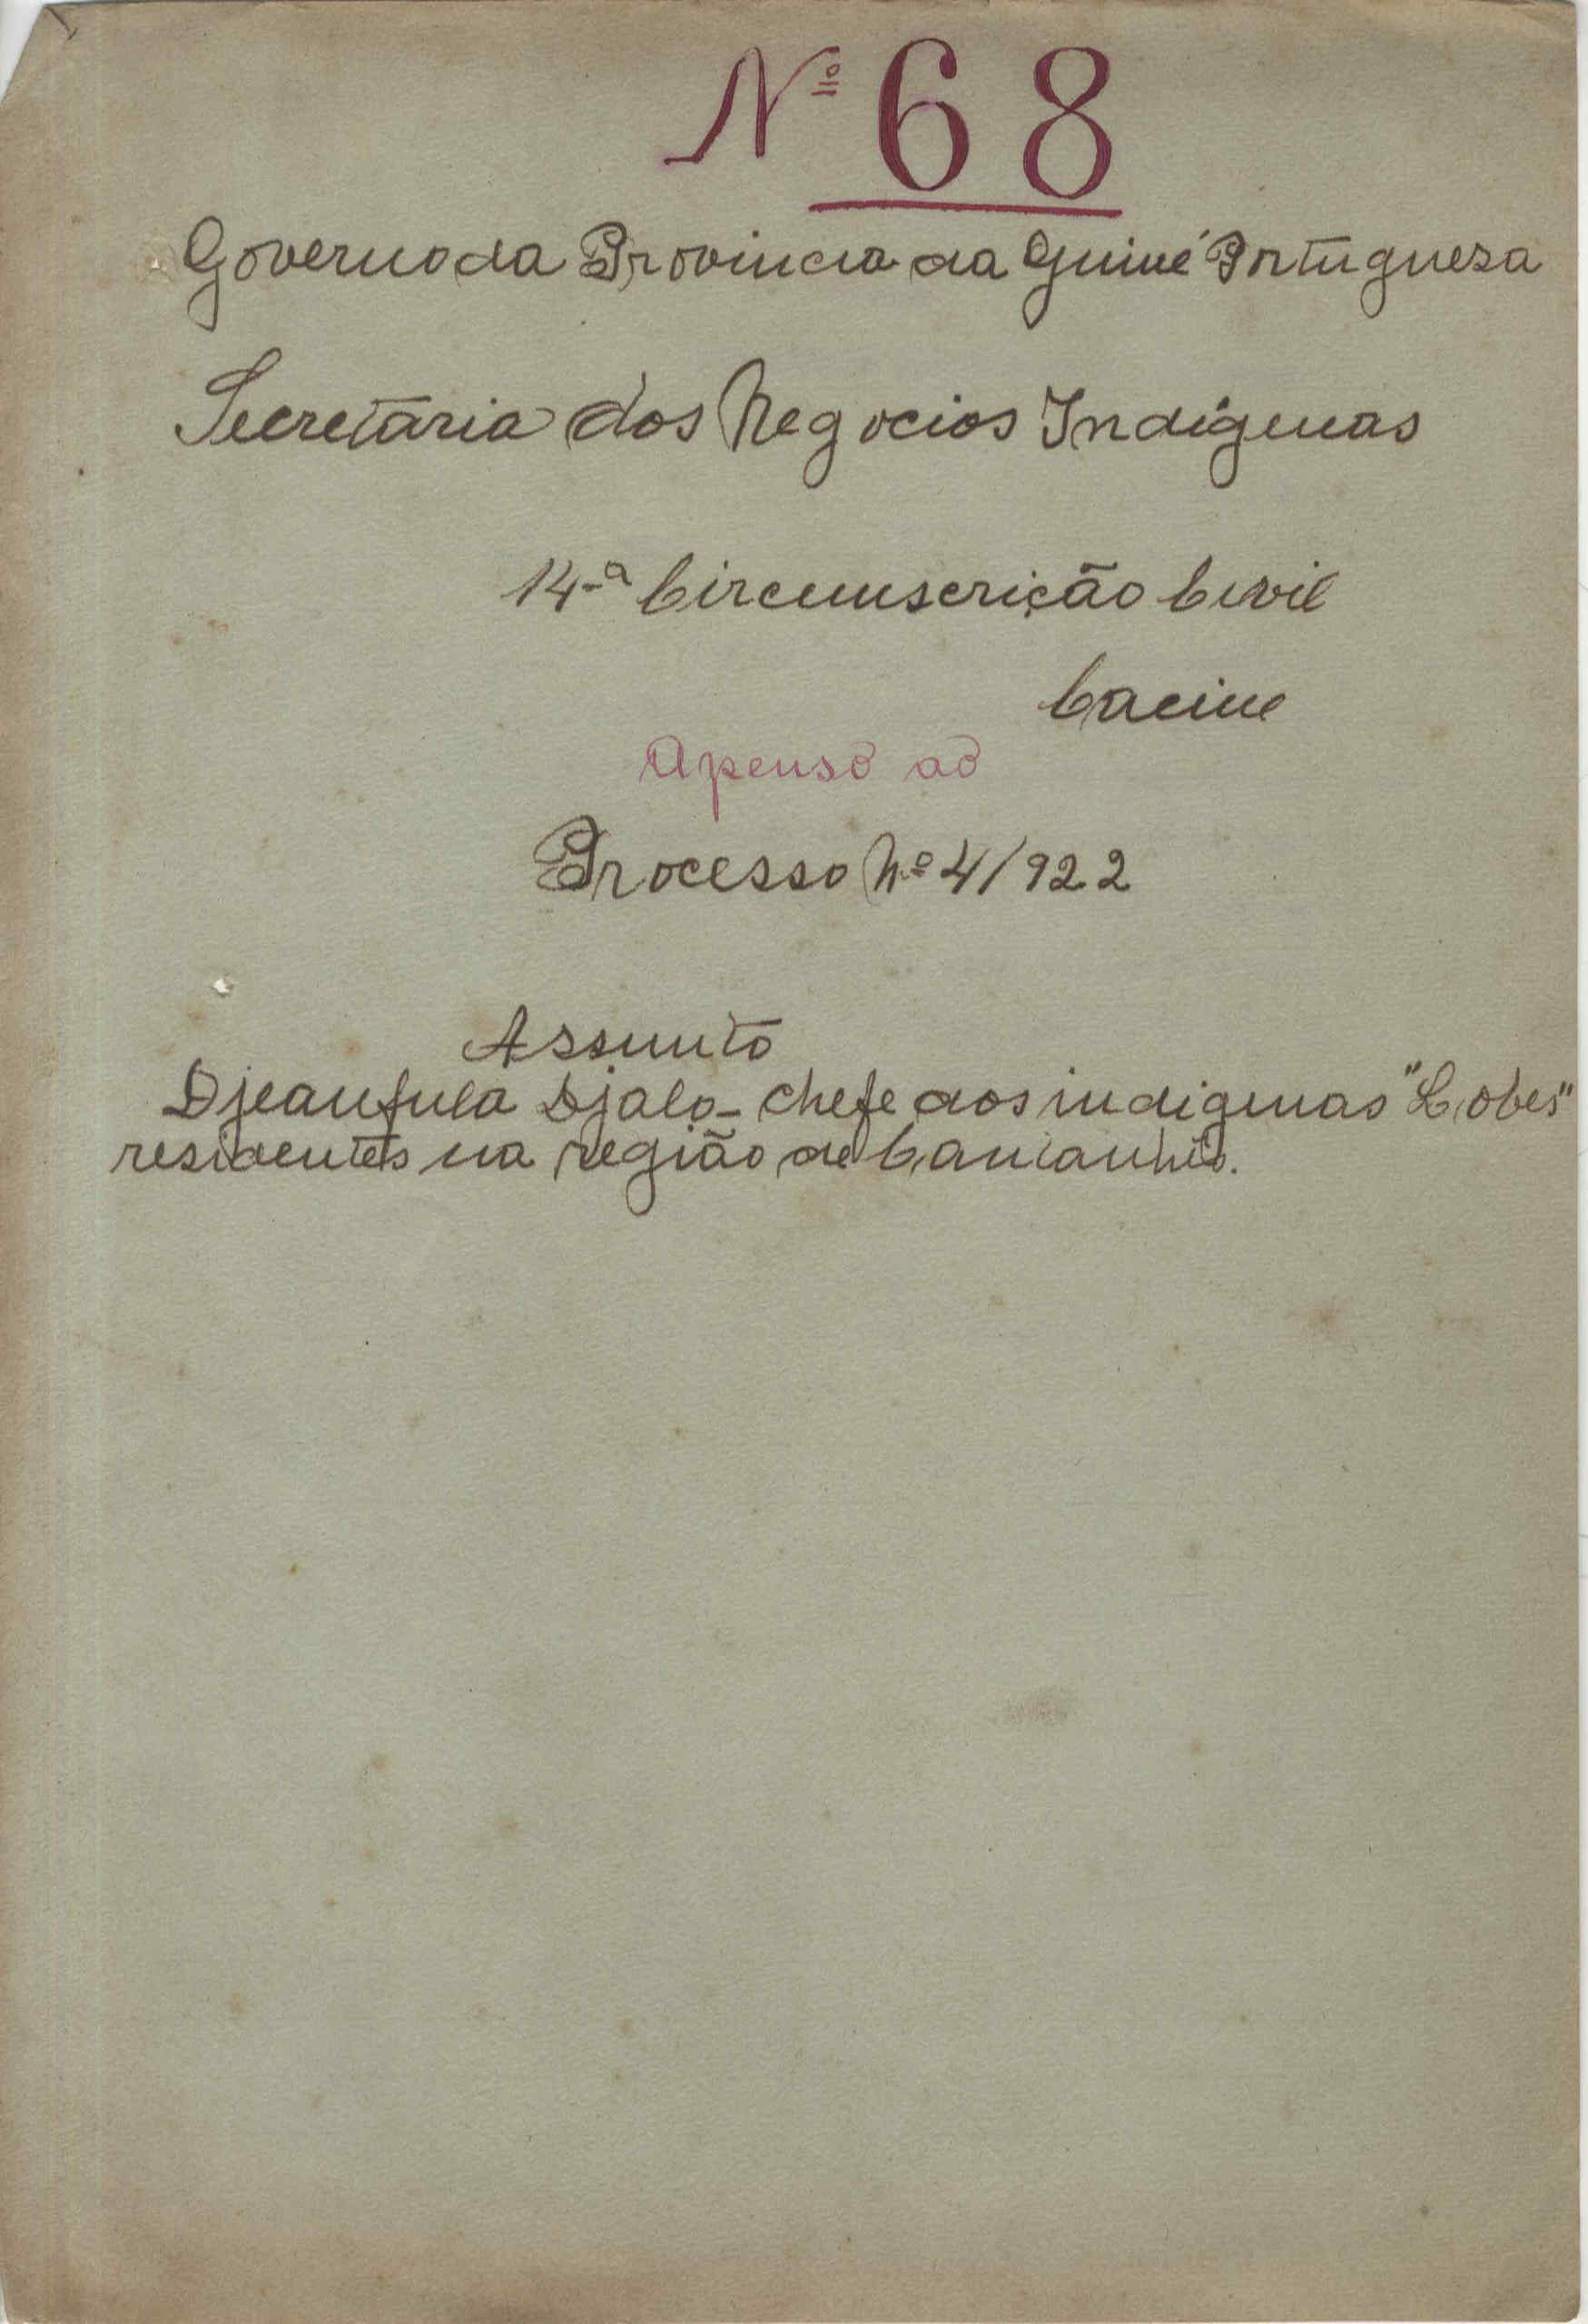 Nº 68
Governo da Provincia da Guiné Portuguesa
Secretaria dos Negocios Indígenas
14-ª Circumscrição Civil
Cacine
Apenso ao
Processo Nº 4/922
Assunto
Djeanfula Djalo - chefe dos indigenas "Lobes"
residentes na região de